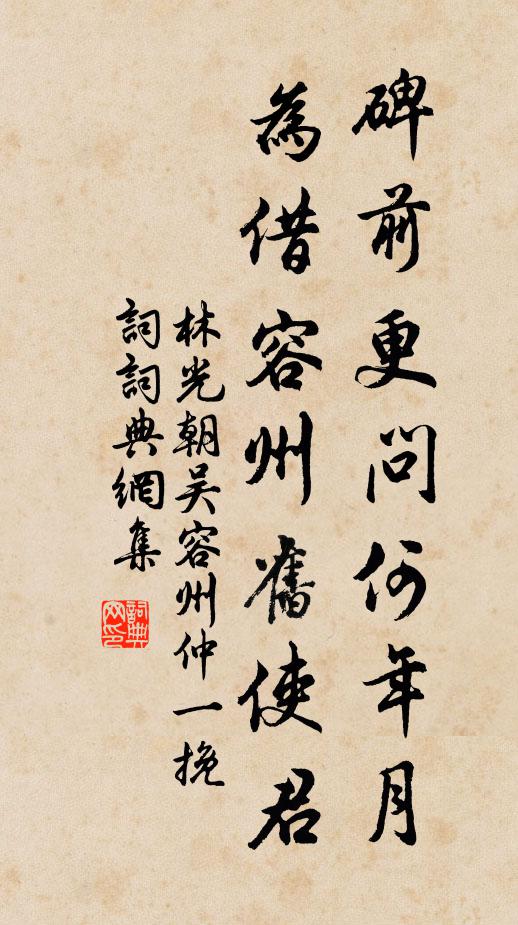 碑前更問何年月
為借容州舊使君
林光朝吴容州仲一挽
詞詞典網集
詞典网印